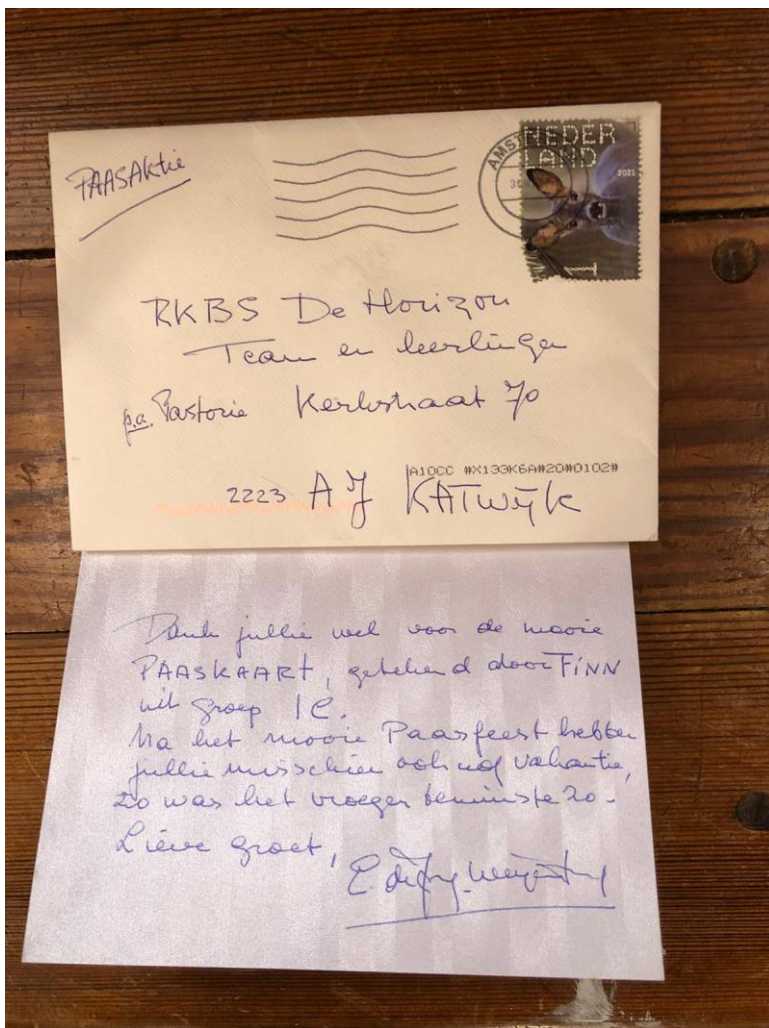 PAASAKtie
AMST
30
NEDER
LAND
2021
1
RKBS De Horizon
Team en leerlingen
p.a. Pastorie Kerkstraat 70
A10CC #X133K6A#20#0102#
2223 AJ KATWijK
Dank jullie wel voor de mooie
PAASKAARt, getekend door FiNN
uit groep 1C.
Na het mooie Paasfeest hebben
jullie misschien ook nog vakantie,
zo was het vroeger teminste zo.
Lieve groet,
E. de Jong